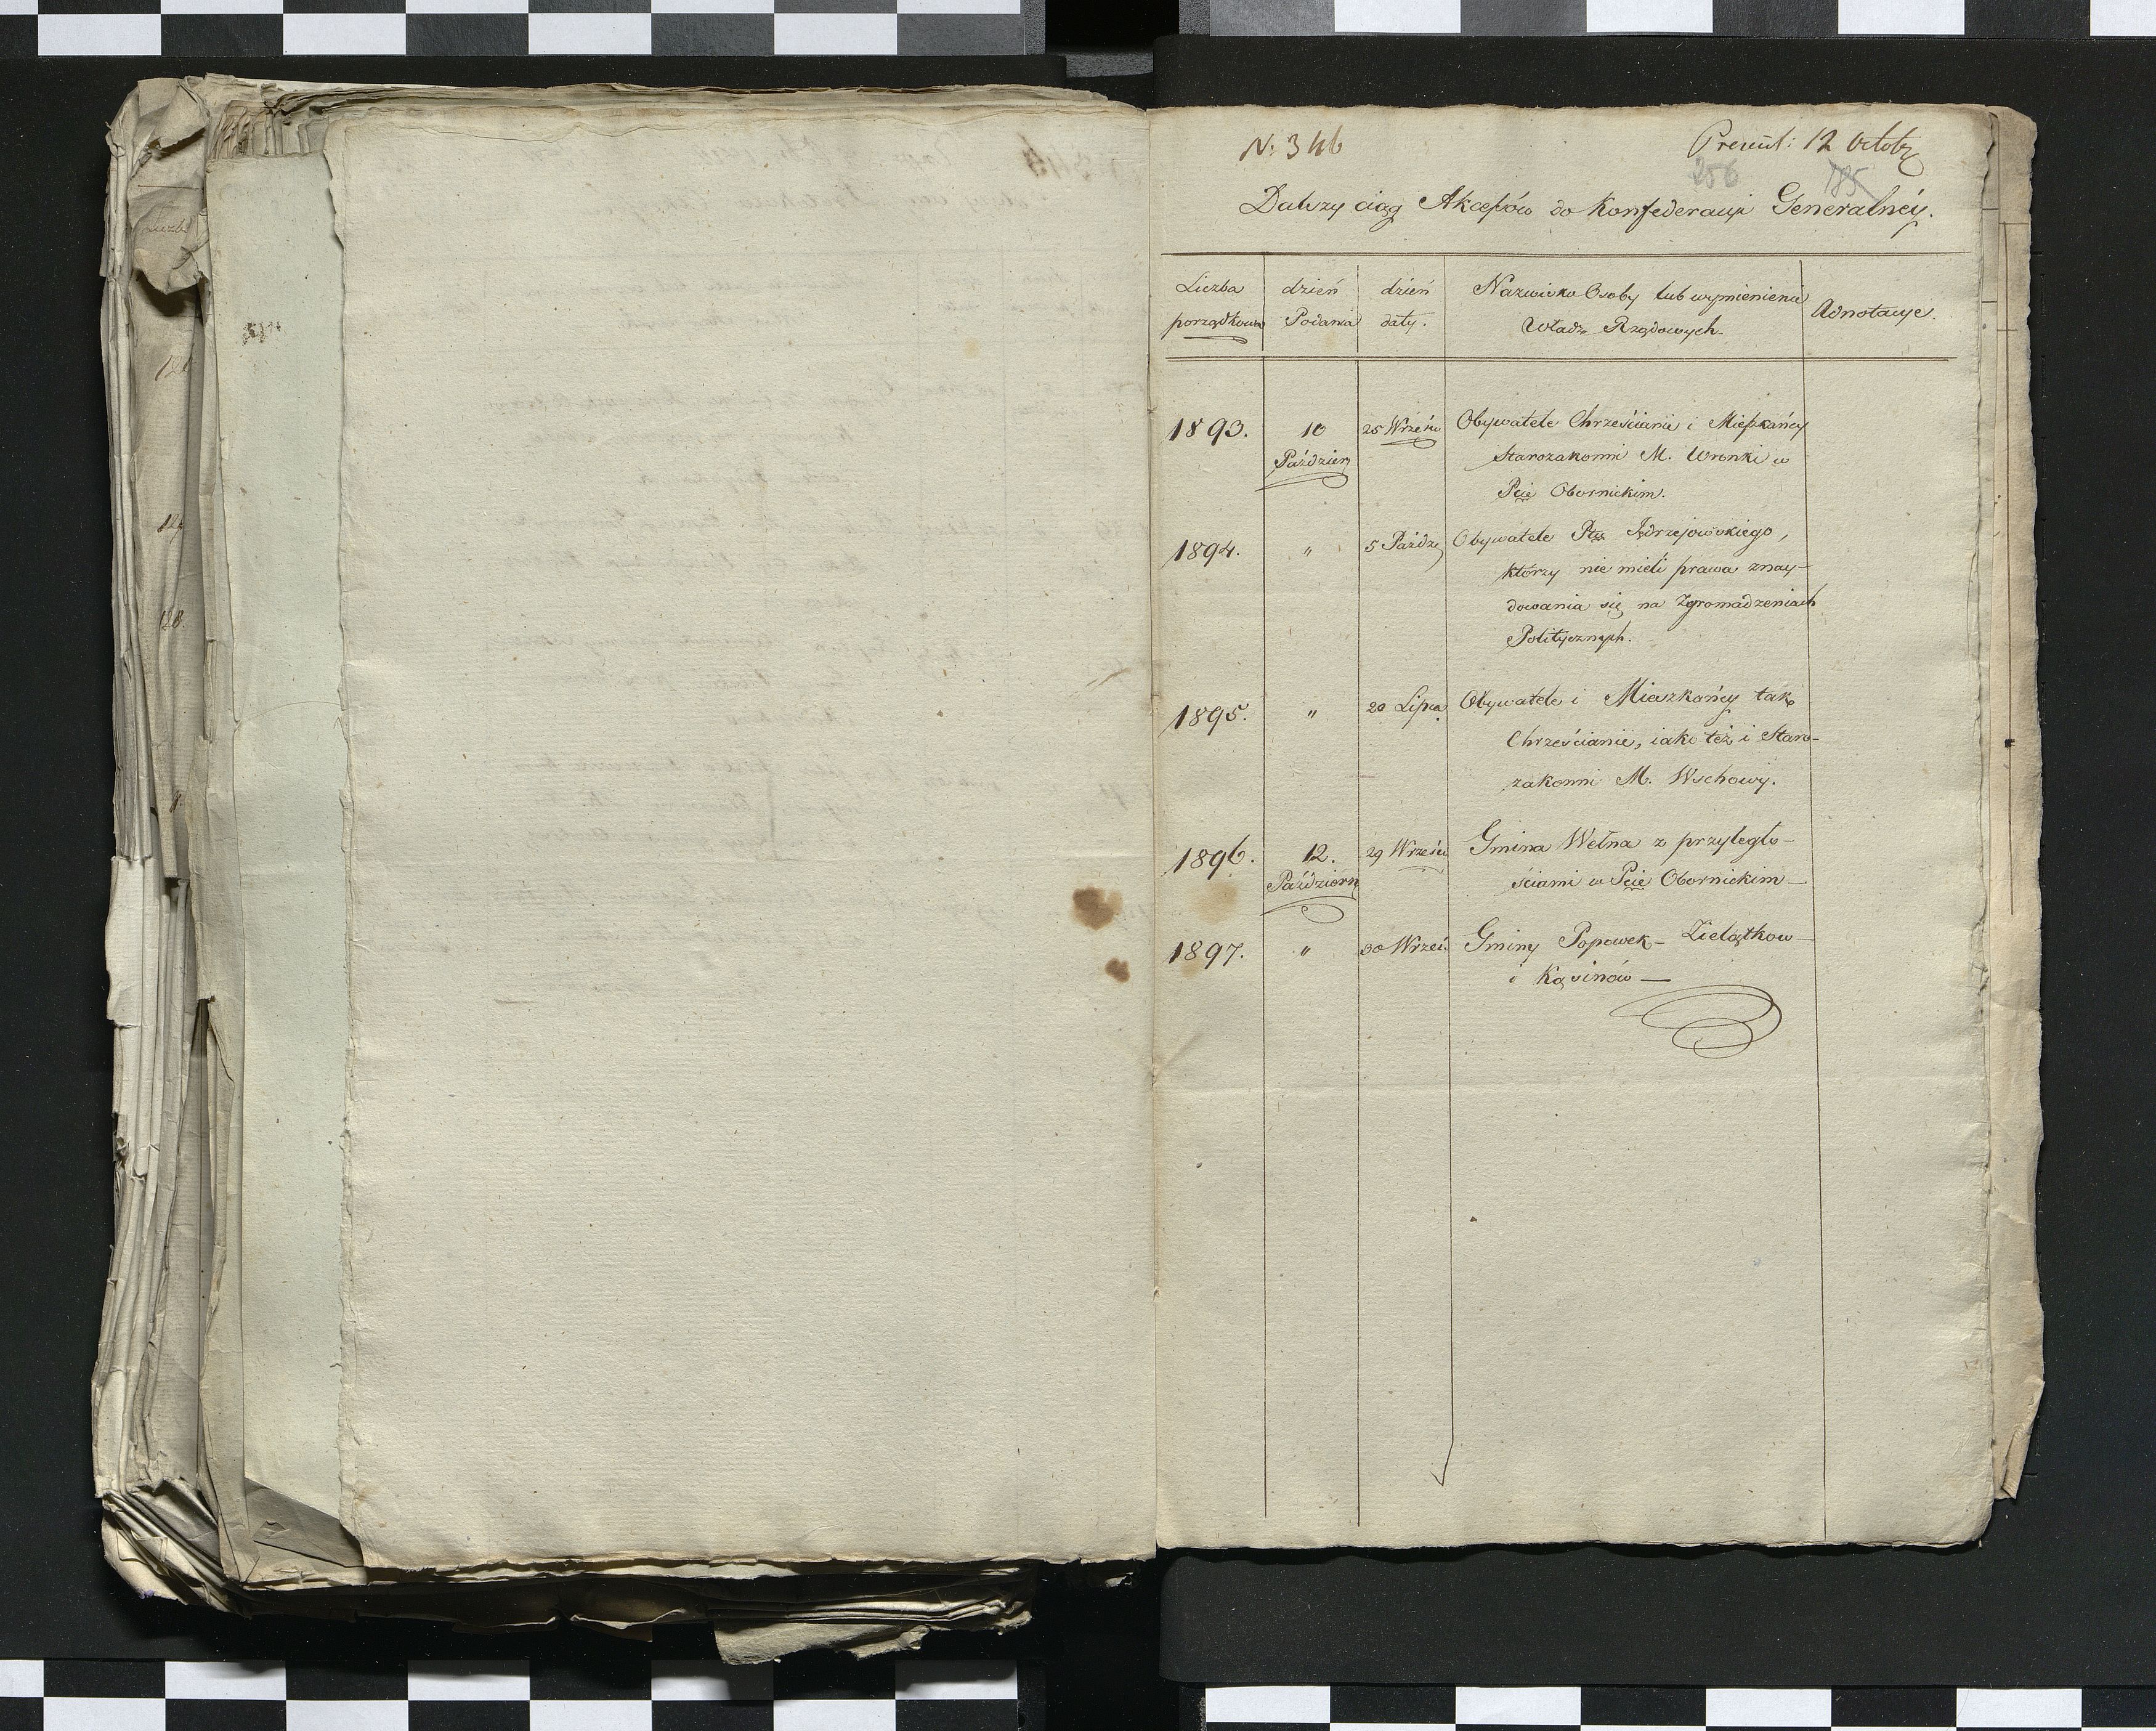 N: 346
Presentt: 12 Octobr
256
185
Dalszy ciąg Akcesów do Konfederacyi Generalnéy.
Liczba porządkowa
dzień Podania
dzień daty.
Nazwisko Osoby lub wymienienie Władz Rządowych.
Adnotacye.
1893. 10 25 Wrześn Obywatele Chrześcianie i Mieszkańcy
Paździer Starozakonni M. Wronki w
Pcie Obornickim.
1894. " 5 Paźdz Obywatele Ptu Jędrzejowskiego,
którzy nie mieli prawa znay-
dowania się na Zgromadzeniach
Politycznych.
1895. " 20 Lipca Obywatele i Mieszkańcy tak
Chrześcianie, iako też i Staro-
zakonni M. Wschowy.
1896. 12. 29 Wrześn Gmina Wełna z przyległo-
Październ ściami w Pcie Obornickim
1897. " 30 Wrześ. Gminy Popowek - Zielątkow
i Kąsinów